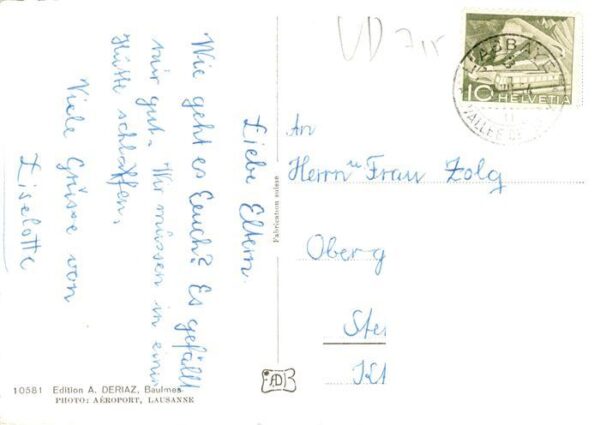 Liebe Eltern.
Wie geht es Eeuch? Es gefällt
mir gut. Wir müssen in einer
Hütte schlaffen.
Viele Grüsse von
Liselotte
VD 715
L'ABBAYE
VALLEE DE
10 HELVETIA
An
Herrn u Frau Zolg
Oberg
Ste
Kt
Fabrication suisse
AD
10581 Edition A. DERIAZ, Baulmes
PHOTO: AÉROPORT, LAUSANNE